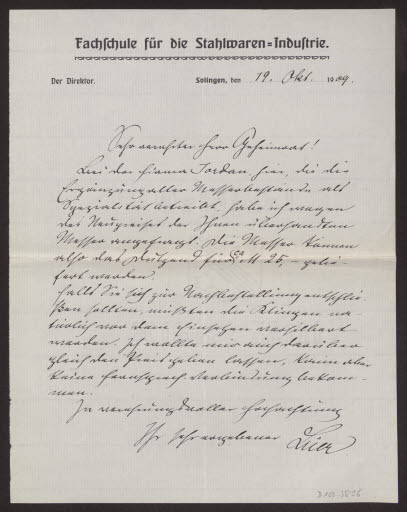 Fachschule für die Stahlwaren=Industrie.
Der Direktor.
Solingen, den 19. Okt. 1909.
Sehr verehrter Herr Geheimrat!
Bei der Firma Jordan hier, die die
Ergänzung alter Messerbestände als
Spezialität betreibt, habe ich wegen
des Neupreises der Ihnen übersandten
Messer angefragt. Die Messer können
also das Dutzend für ca M 25,- gelie-
fert werden.
Falls Sie sich zur Nachbestellung entschlie-
ßen sollten, müßten die Klingen na-
türlich vor dem Einsetzen versilbert
werden. Ich wollte mir auch darüber
gleich den Preis geben lassen, kann aber
keine Fernsprech Verbindung bekom-
men.
In verehrungsvoller Hochachtung
Ihr sehr ergebener